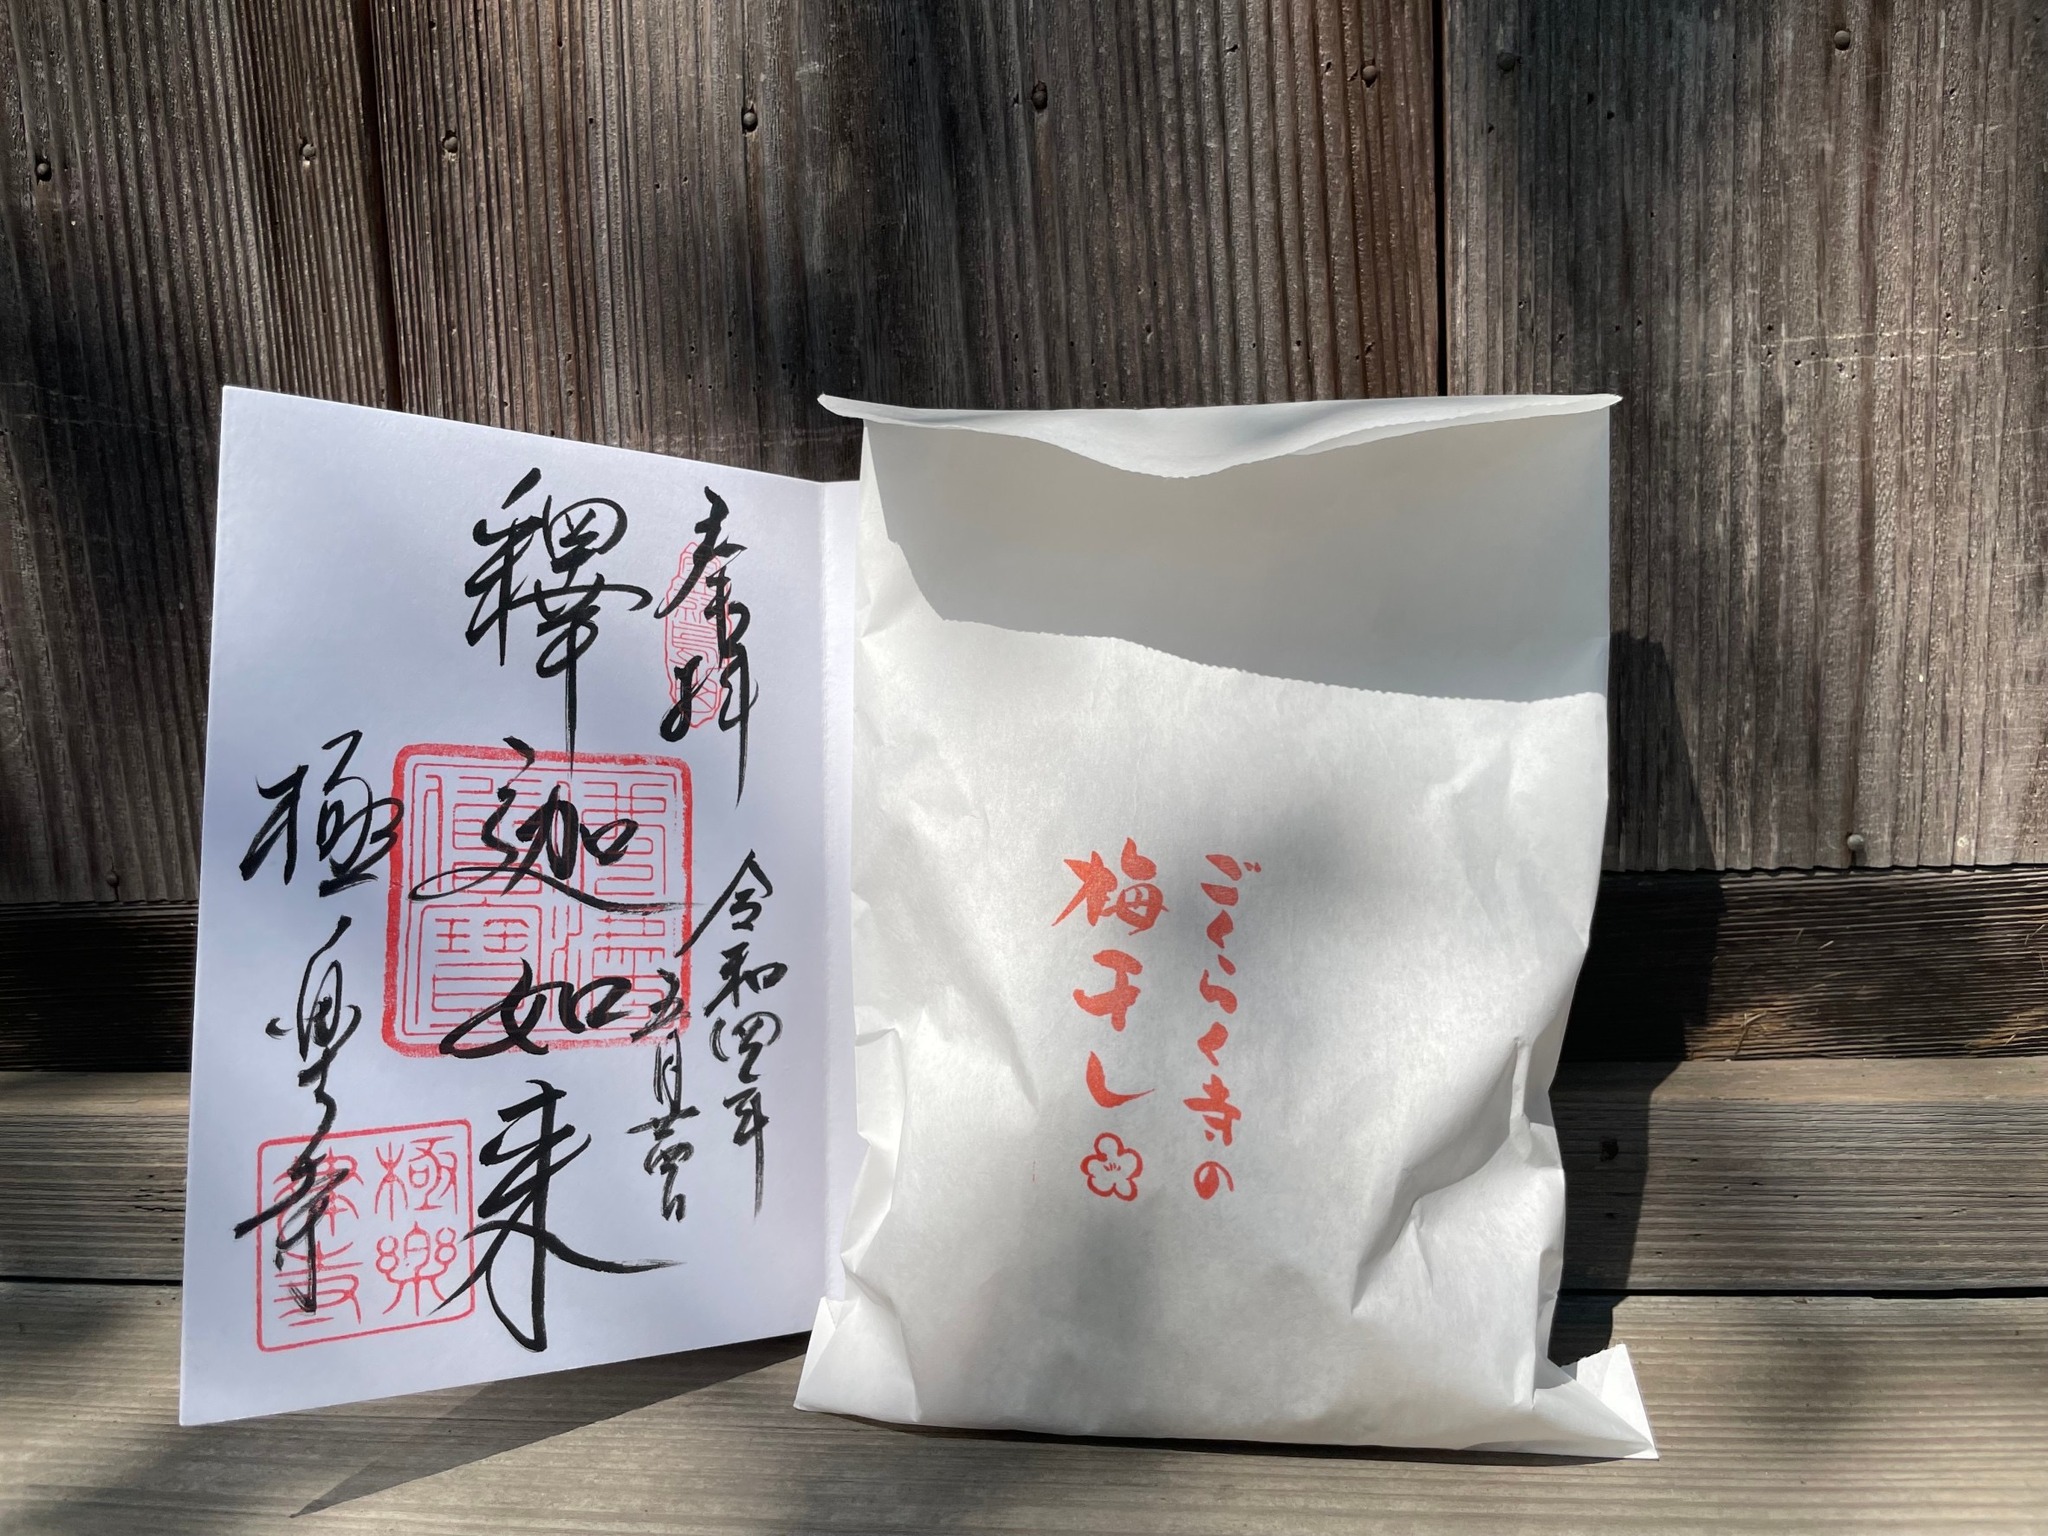 奉拝
令和四年
五月廿四日
釋迦如来
極楽寺
佛法僧寶
極樂律寺
ごくらく寺の
梅干し